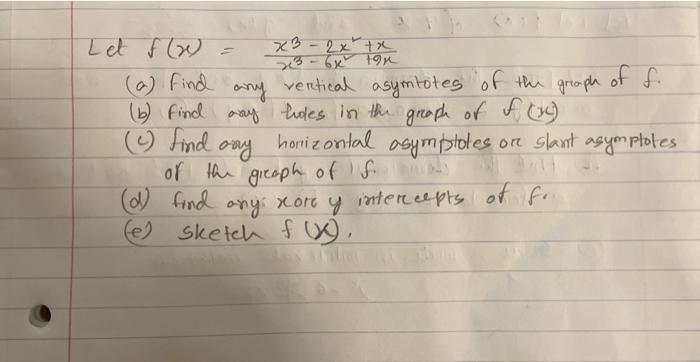 Let f(x) = x³ - 2x² + x / x³ - 6x² + 9x
(a) find any vertical asymtotes of the graph of f.
(b) find any holes in the graph of f(x)
(c) find any horizontal asymptotes or slant asymptotes
of the graph of f.
(d) find any x or y intercepts of f.
(e) sketch f(x).